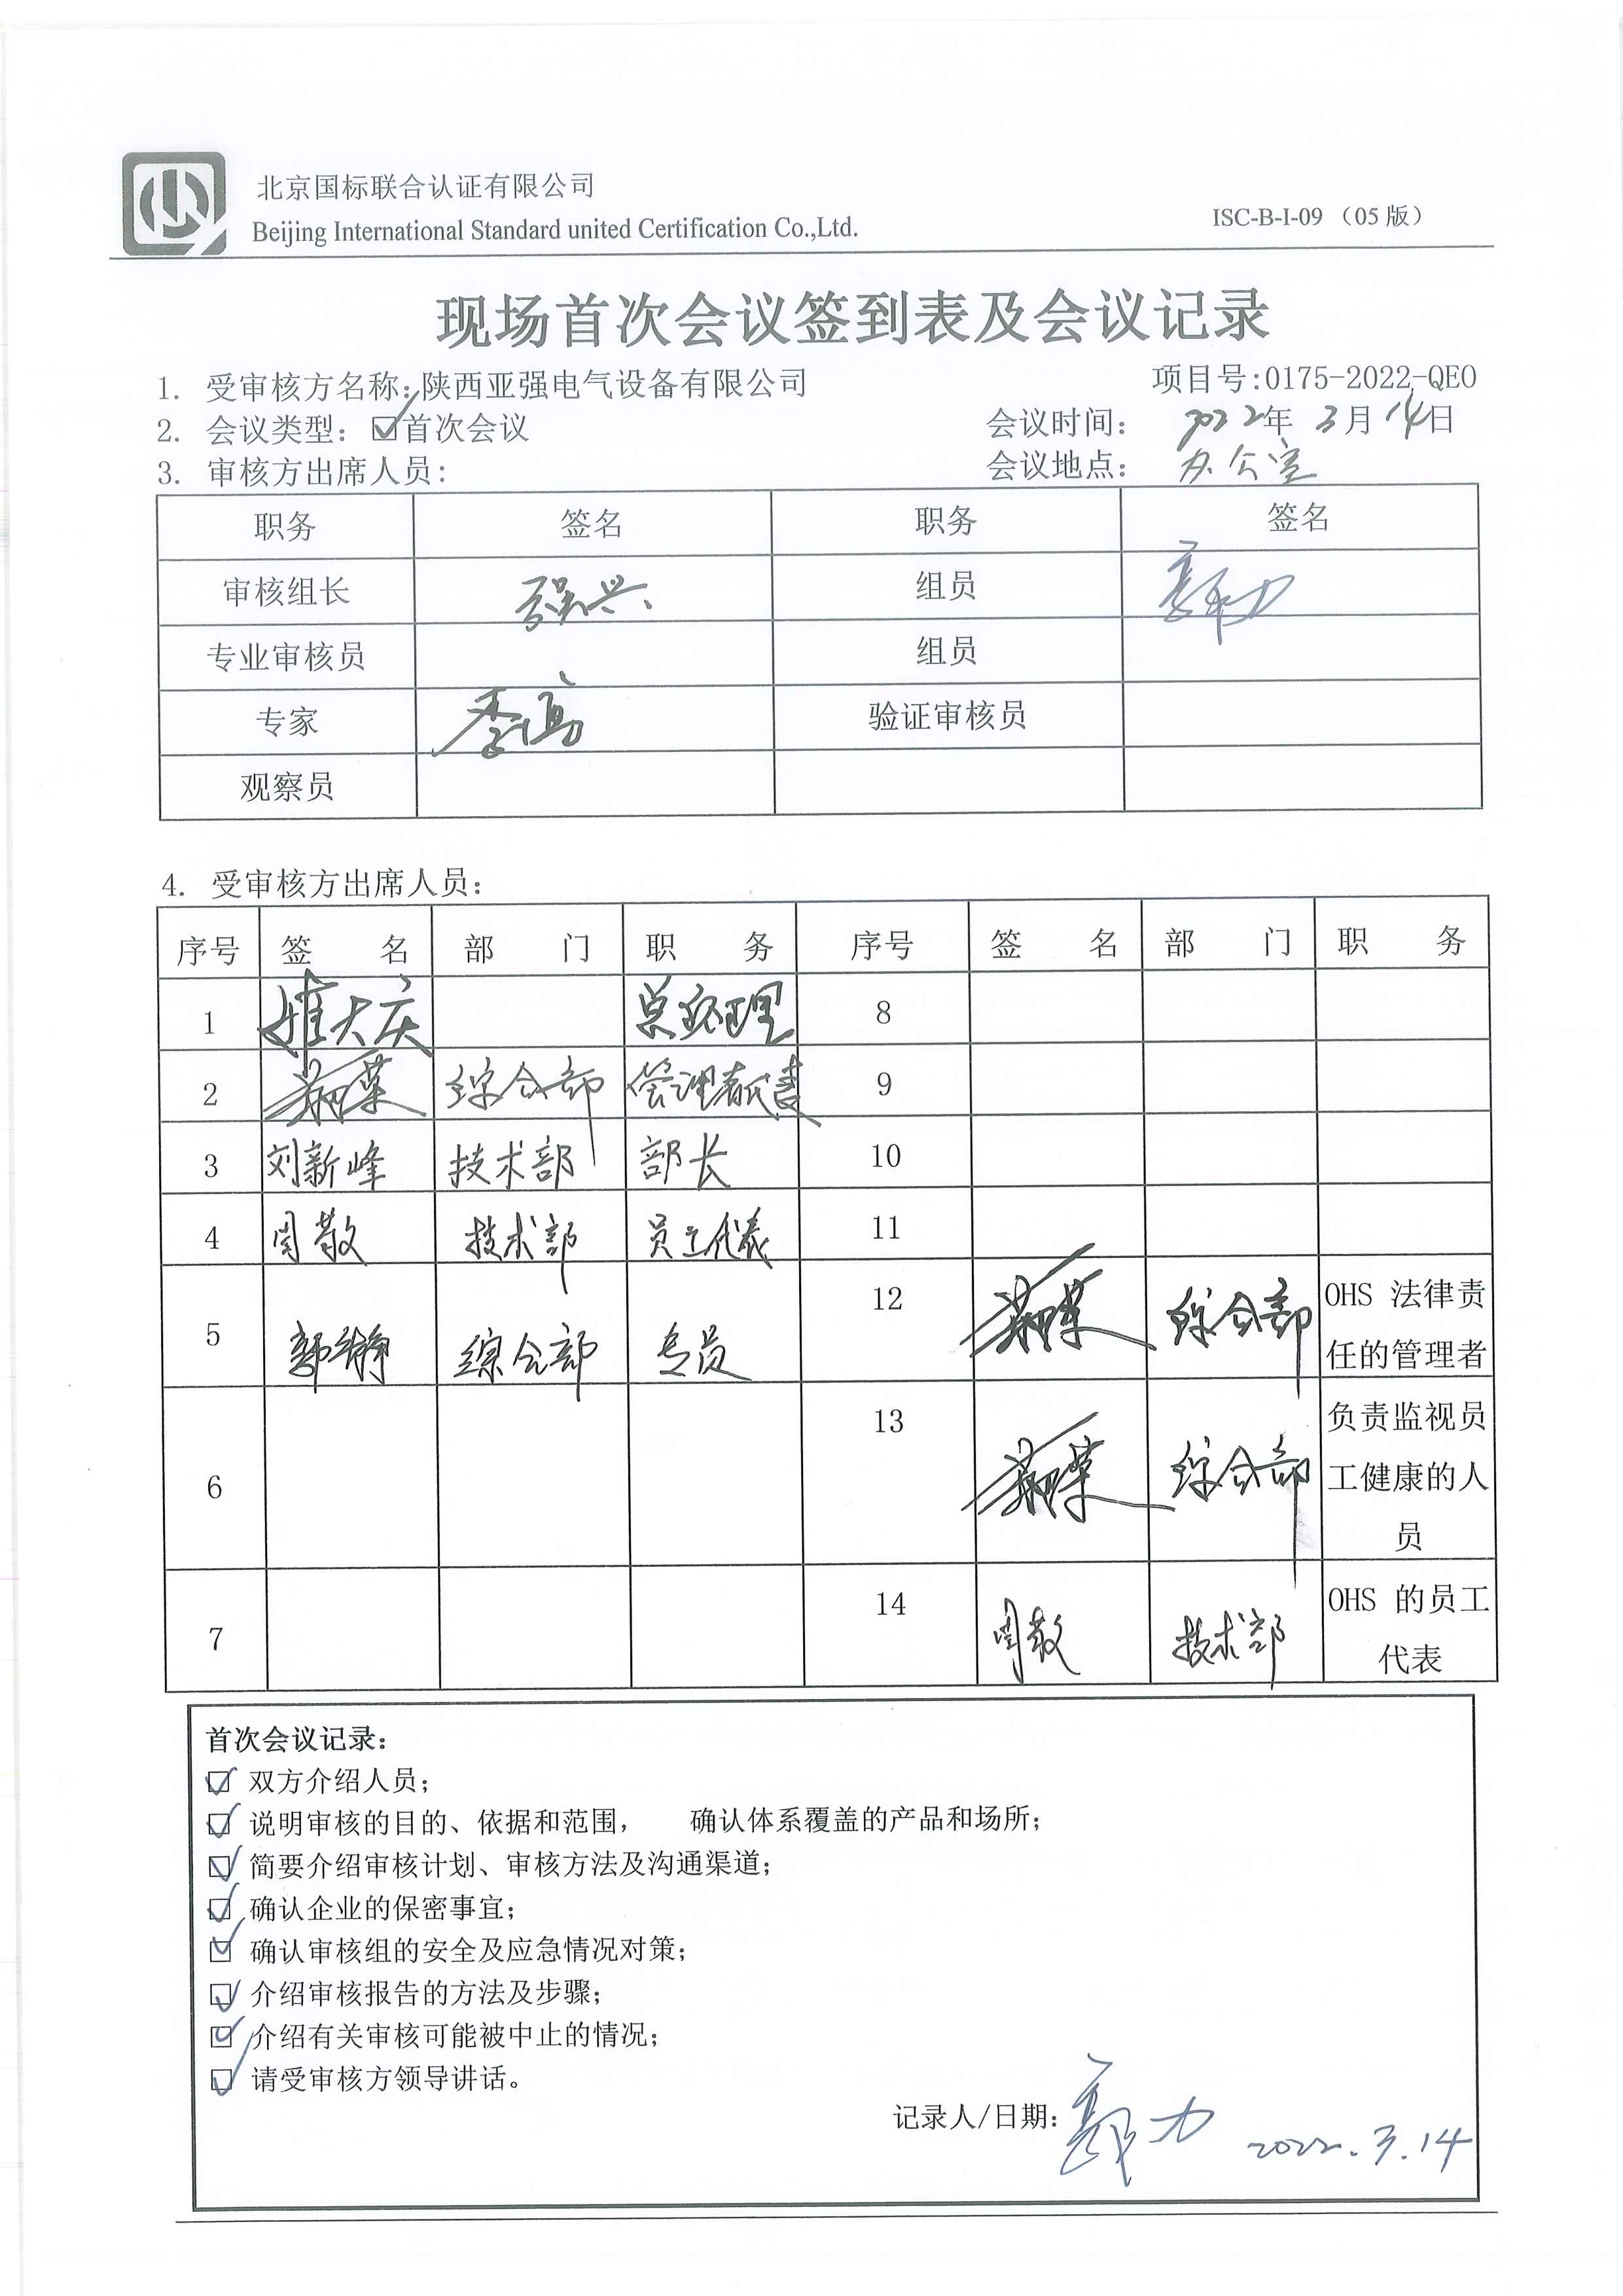 北京国标联合认证有限公司
Beijing International Standard united Certification Co.,Ltd.
ISC-B-I-09 （05 版）
现场首次会议签到表及会议记录
1. 受审核方名称:陕西亚强电气设备有限公司 项目号:0175-2022-QEO
2. 会议类型: ☑首次会议 会议时间: 2022年 3月 14日
3. 审核方出席人员: 会议地点: 办公室
职务 签名 职务 签名
审核组长 强兴 组员 郭力
专业审核员 组员
专家 验证审核员
观察员
4. 受审核方出席人员:
序号 签 名 部 门 职 务 序号 签 名 部 门 职 务
1 大庆 总经理 8
2 综合部 管理者代表 9
3 刘新峰 技术部 部长 10
4 周敬 技术部 员工代表 11
5 郭静 综合部 专员 12 综合部 OHS 法律责任的管理者
6 13 综合部 负责监视员工健康的人员
7 14 周敬 技术部 OHS 的员工代表
首次会议记录:
☑ 双方介绍人员;
☑ 说明审核的目的、依据和范围, 确认体系覆盖的产品和场所;
☑ 简要介绍审核计划、审核方法及沟通渠道;
☑ 确认企业的保密事宜;
☑ 确认审核组的安全及应急情况对策;
☑ 介绍审核报告的方法及步骤;
☑ 介绍有关审核可能被中止的情况;
☑ 请受审核方领导讲话。
记录人/日期: 郭力 2022.3.14